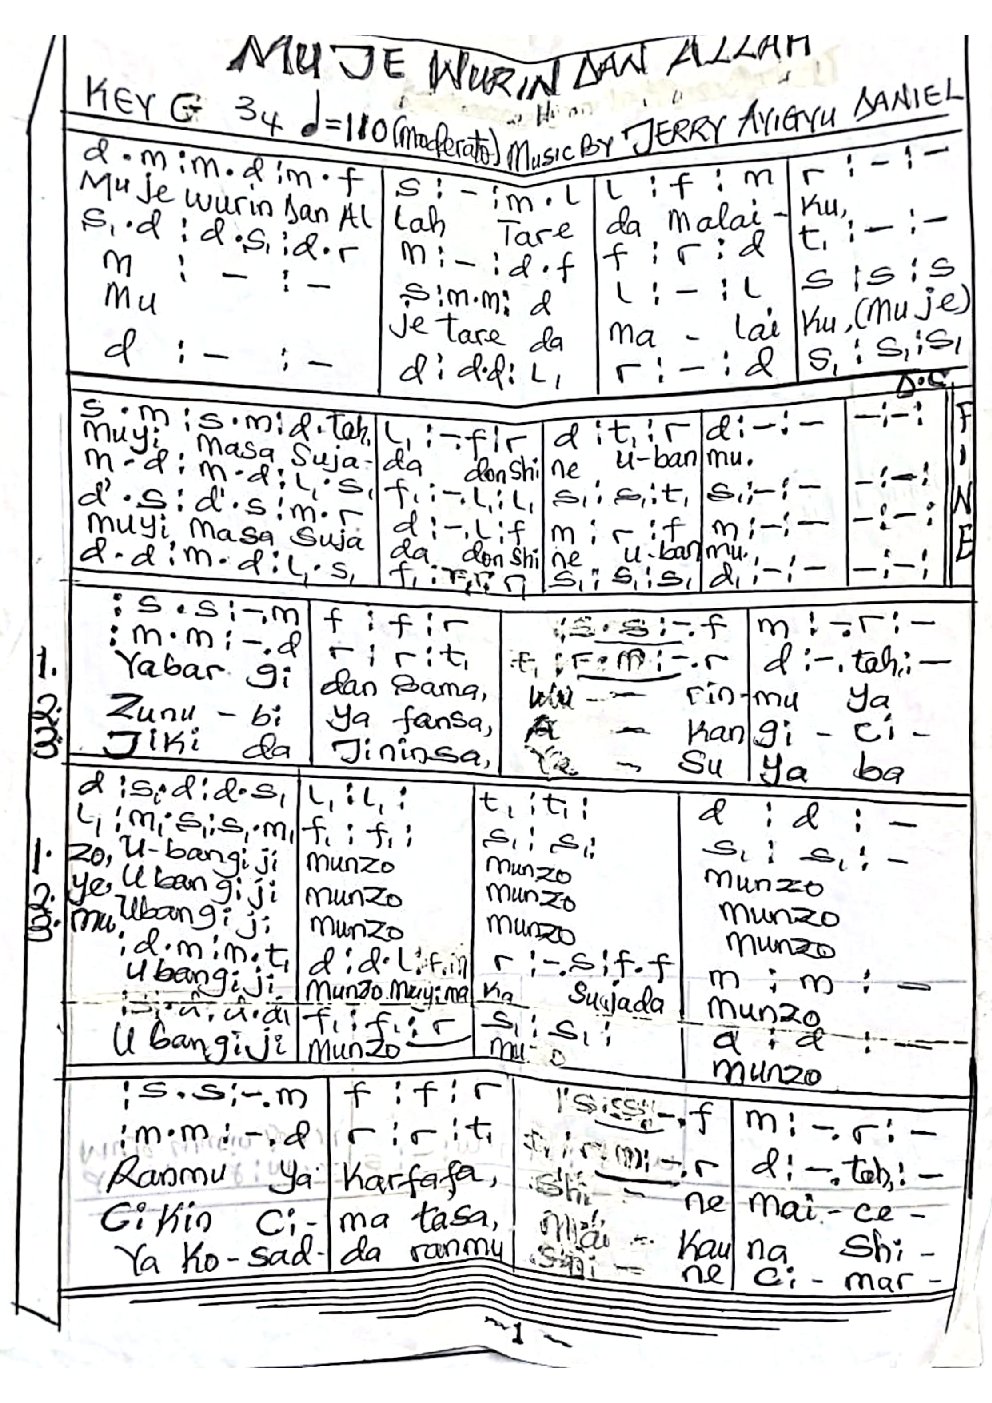 MUJE WURIN DAN ALLAH
KEY G 34 ♩=110 (moderato) Music By JERRY AYIGYU DANIEL
d.m:m.d:m.f | s:-:m.l | l:f:m | r:-:-
Muje wurin Dan Al | lah Tare | da Malai- | Ku,
s₁.d:d.s₁:d.r | m:-:d.f | f:r:d | t₁:-:-
m:-:- | s:m.m:d | l:-:l | s:s:s
Mu | je tare da | ma - lai | Ku, (Mu je)
d:-:- | d:d.d:l₁ | r:-:d | s₁:s₁:s₁
D.C
s.m:s.m:d.tah₁ | l₁:-.f:r | d:t₁:r | d:-:- | -:-:
muyi Masa Suja- | da donshi | ne u-ban | mu.
m.d:m.d:l₁.s₁ | f₁:-.l₁:l₁ | s₁:s₁:t₁ | s₁:-:- | -:-:-
d'.s:d'.s:m.r | d:-.l:f | m:r:f | m:-:- | -:-:-
muyi Masa Suja | da donshi | ne u-ban | mu.
d.d:m.d:l₁.s₁ | s₁:s₁:s₁ | d₁:-:- | -:-:
FINE
:s.s:-.m | f:f:r | :s.s:-.f | m:-.r:-
:m.m:-.d | r:r:t₁ | :r.m:-.r | d:-.tah₁:-
1. Yabar gi | dan Sama, | Wu - rin- | mu ya
2. Zunu - bi | ya fansa, | A - kan | gi - ci -
3. Jiki da | Jininsa, | Ya - Su | ya ba
d:s₁.d:d.s₁ | l₁:l₁: | t₁:t₁: | d:d:-
l₁:m₁.s₁:s₁.m₁ | f₁:f₁: | s₁:s₁: | s₁:s₁:-
1. zo, U-bangiji | munzo | munzo | munzo
2. ye, Ubangiji | munzo | munzo | munzo
3. mu, Ubangiji | munzo | munzo | munzo
:d.m:m.t₁ | d:d.l:f.m | r:-.s:f.f | m:m:-
Ubangiji | Munzo Muyima | Ka Sujada | munzo
f₁:f₁:r | s₁:s₁: | d:d:-
Ubangiji | Munzo | munzo
:s.s:-.m | f:f:r | :s.s:-.f | m:-.r:-
:m.m:-.d | r:r:t₁ | :r.m:-.r | d:-.tah₁:-
Ranmu ya | Karfafa, | Shi - ne | mai-ce-
Cikin Ci- | ma tasa, | Mai - Kau | na Shi -
Ya Ko-sad- | da ranmu | Shi - ne | Ci - mar -
~1~